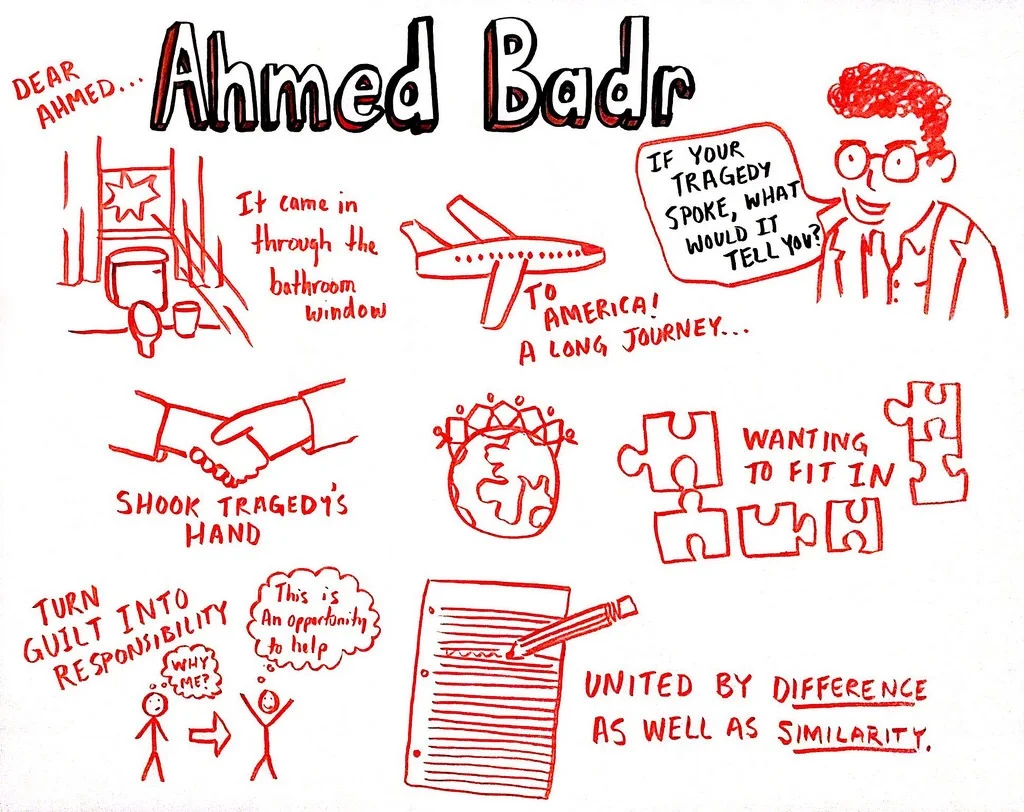 Ahmed Badr
DEAR
AHMED...
It came in
through the
bathroom
window
TO
AMERICA!
A LONG JOURNEY...
IF YOUR
TRAGEDY
SPOKE, WHAT
WOULD IT
TELL YOU?
SHOOK TRAGEDY'S
HAND
WANTING
TO FIT IN
TURN
GUILT INTO
RESPONSIBILITY
WHY
ME?
This is
An opportunity
to help
UNITED BY DIFFERENCE
AS WELL AS SIMILARITY.